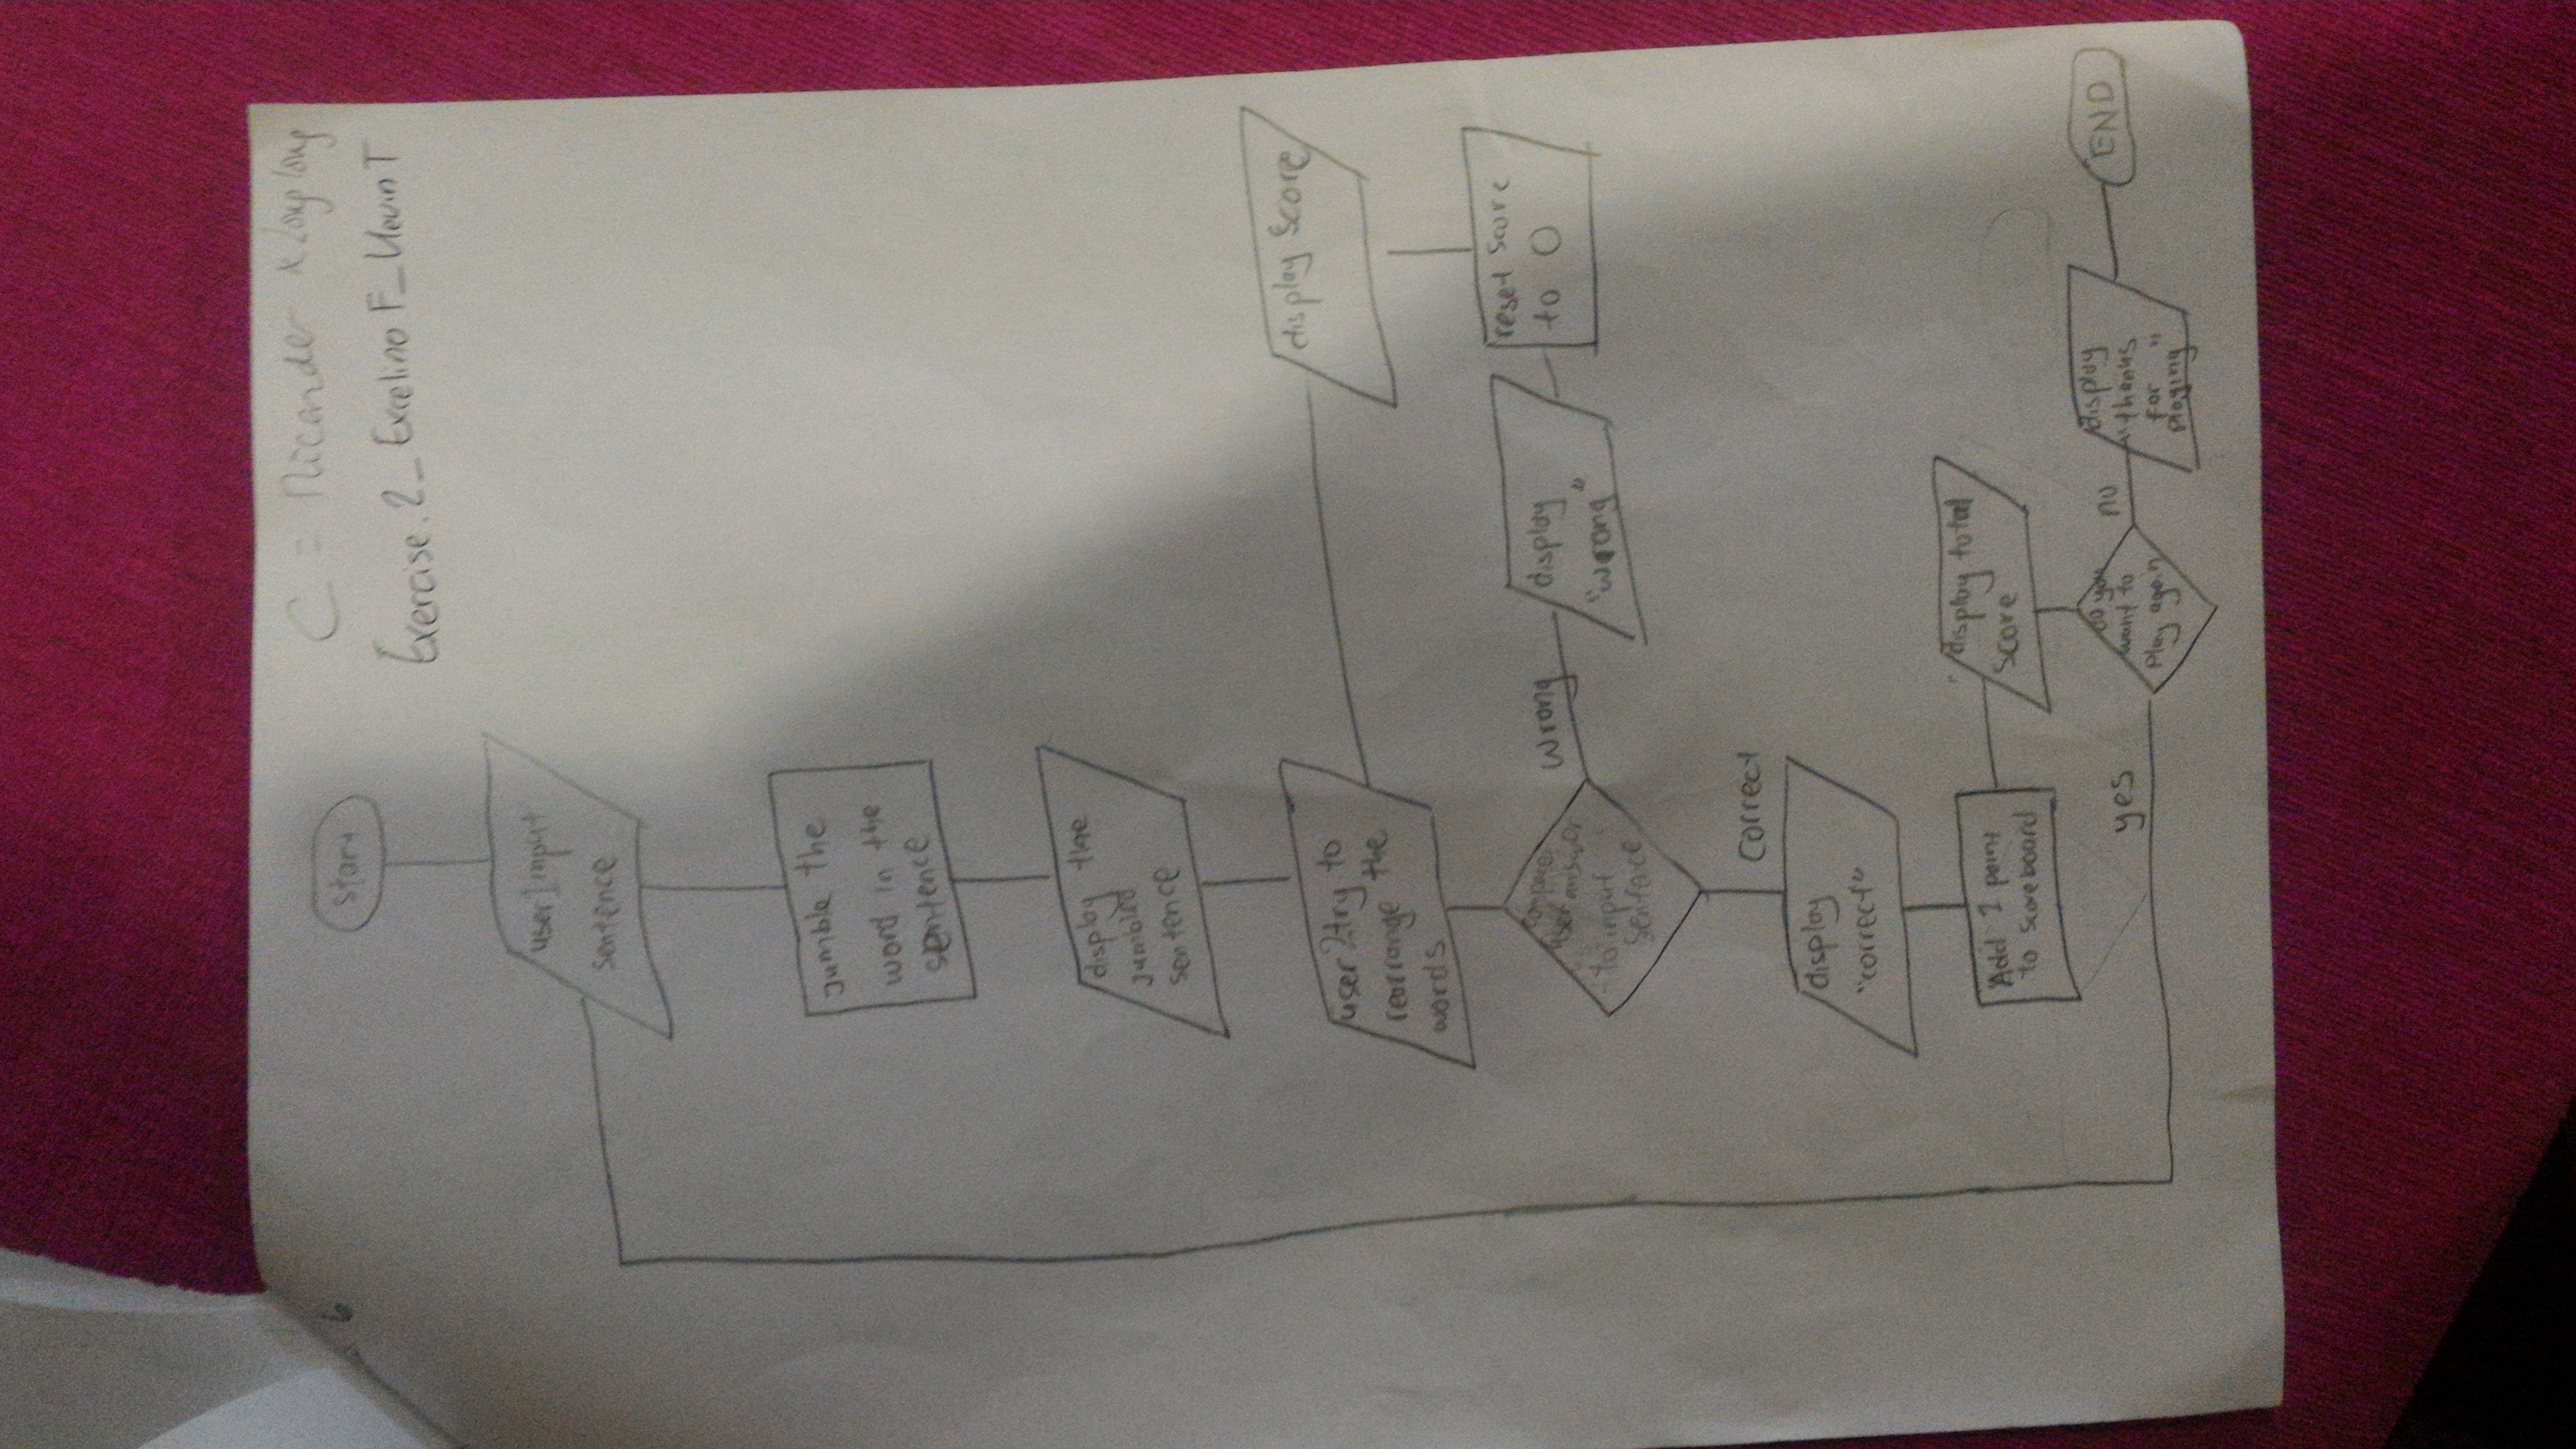 C = Nicander Klong long
Exercise.2_Exelino F_UavinT
start
user1 input
sentence
jumble the
word in the
sentence
display the
jumbled
sentence
user 2 try to
rearrange the
words
compare
user answer
to input
sentace
wrong
display
"wrong"
reset score
to 0
display score
correct
display
"correct"
Add 1 point
to scoreboard
display total
score
do you
want to
play again
yes
no
display
"thanks
for
playing"
END
6